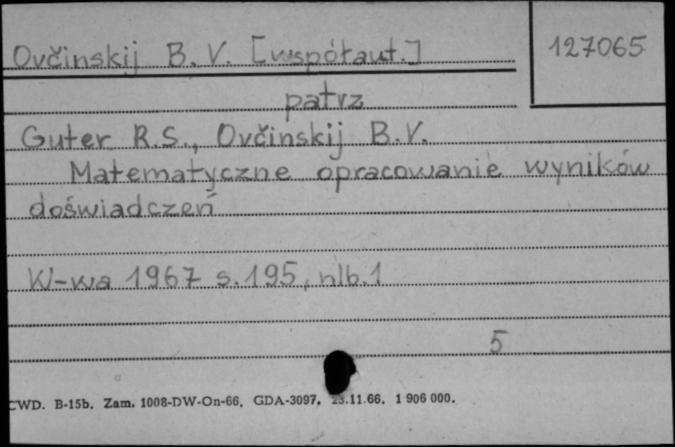 Ovčinskij B.V. [współaut.]
127065
patrz
Guter R.S., Ovčinskij B.V.
Matematyczne opracowanie wyników
doświadczeń
W-wa 1967 s.195, nlb.1
5
CWD. B-15b. Zam. 1008-DW-On-66. GDA-3097. 23.11.66. 1 906 000.